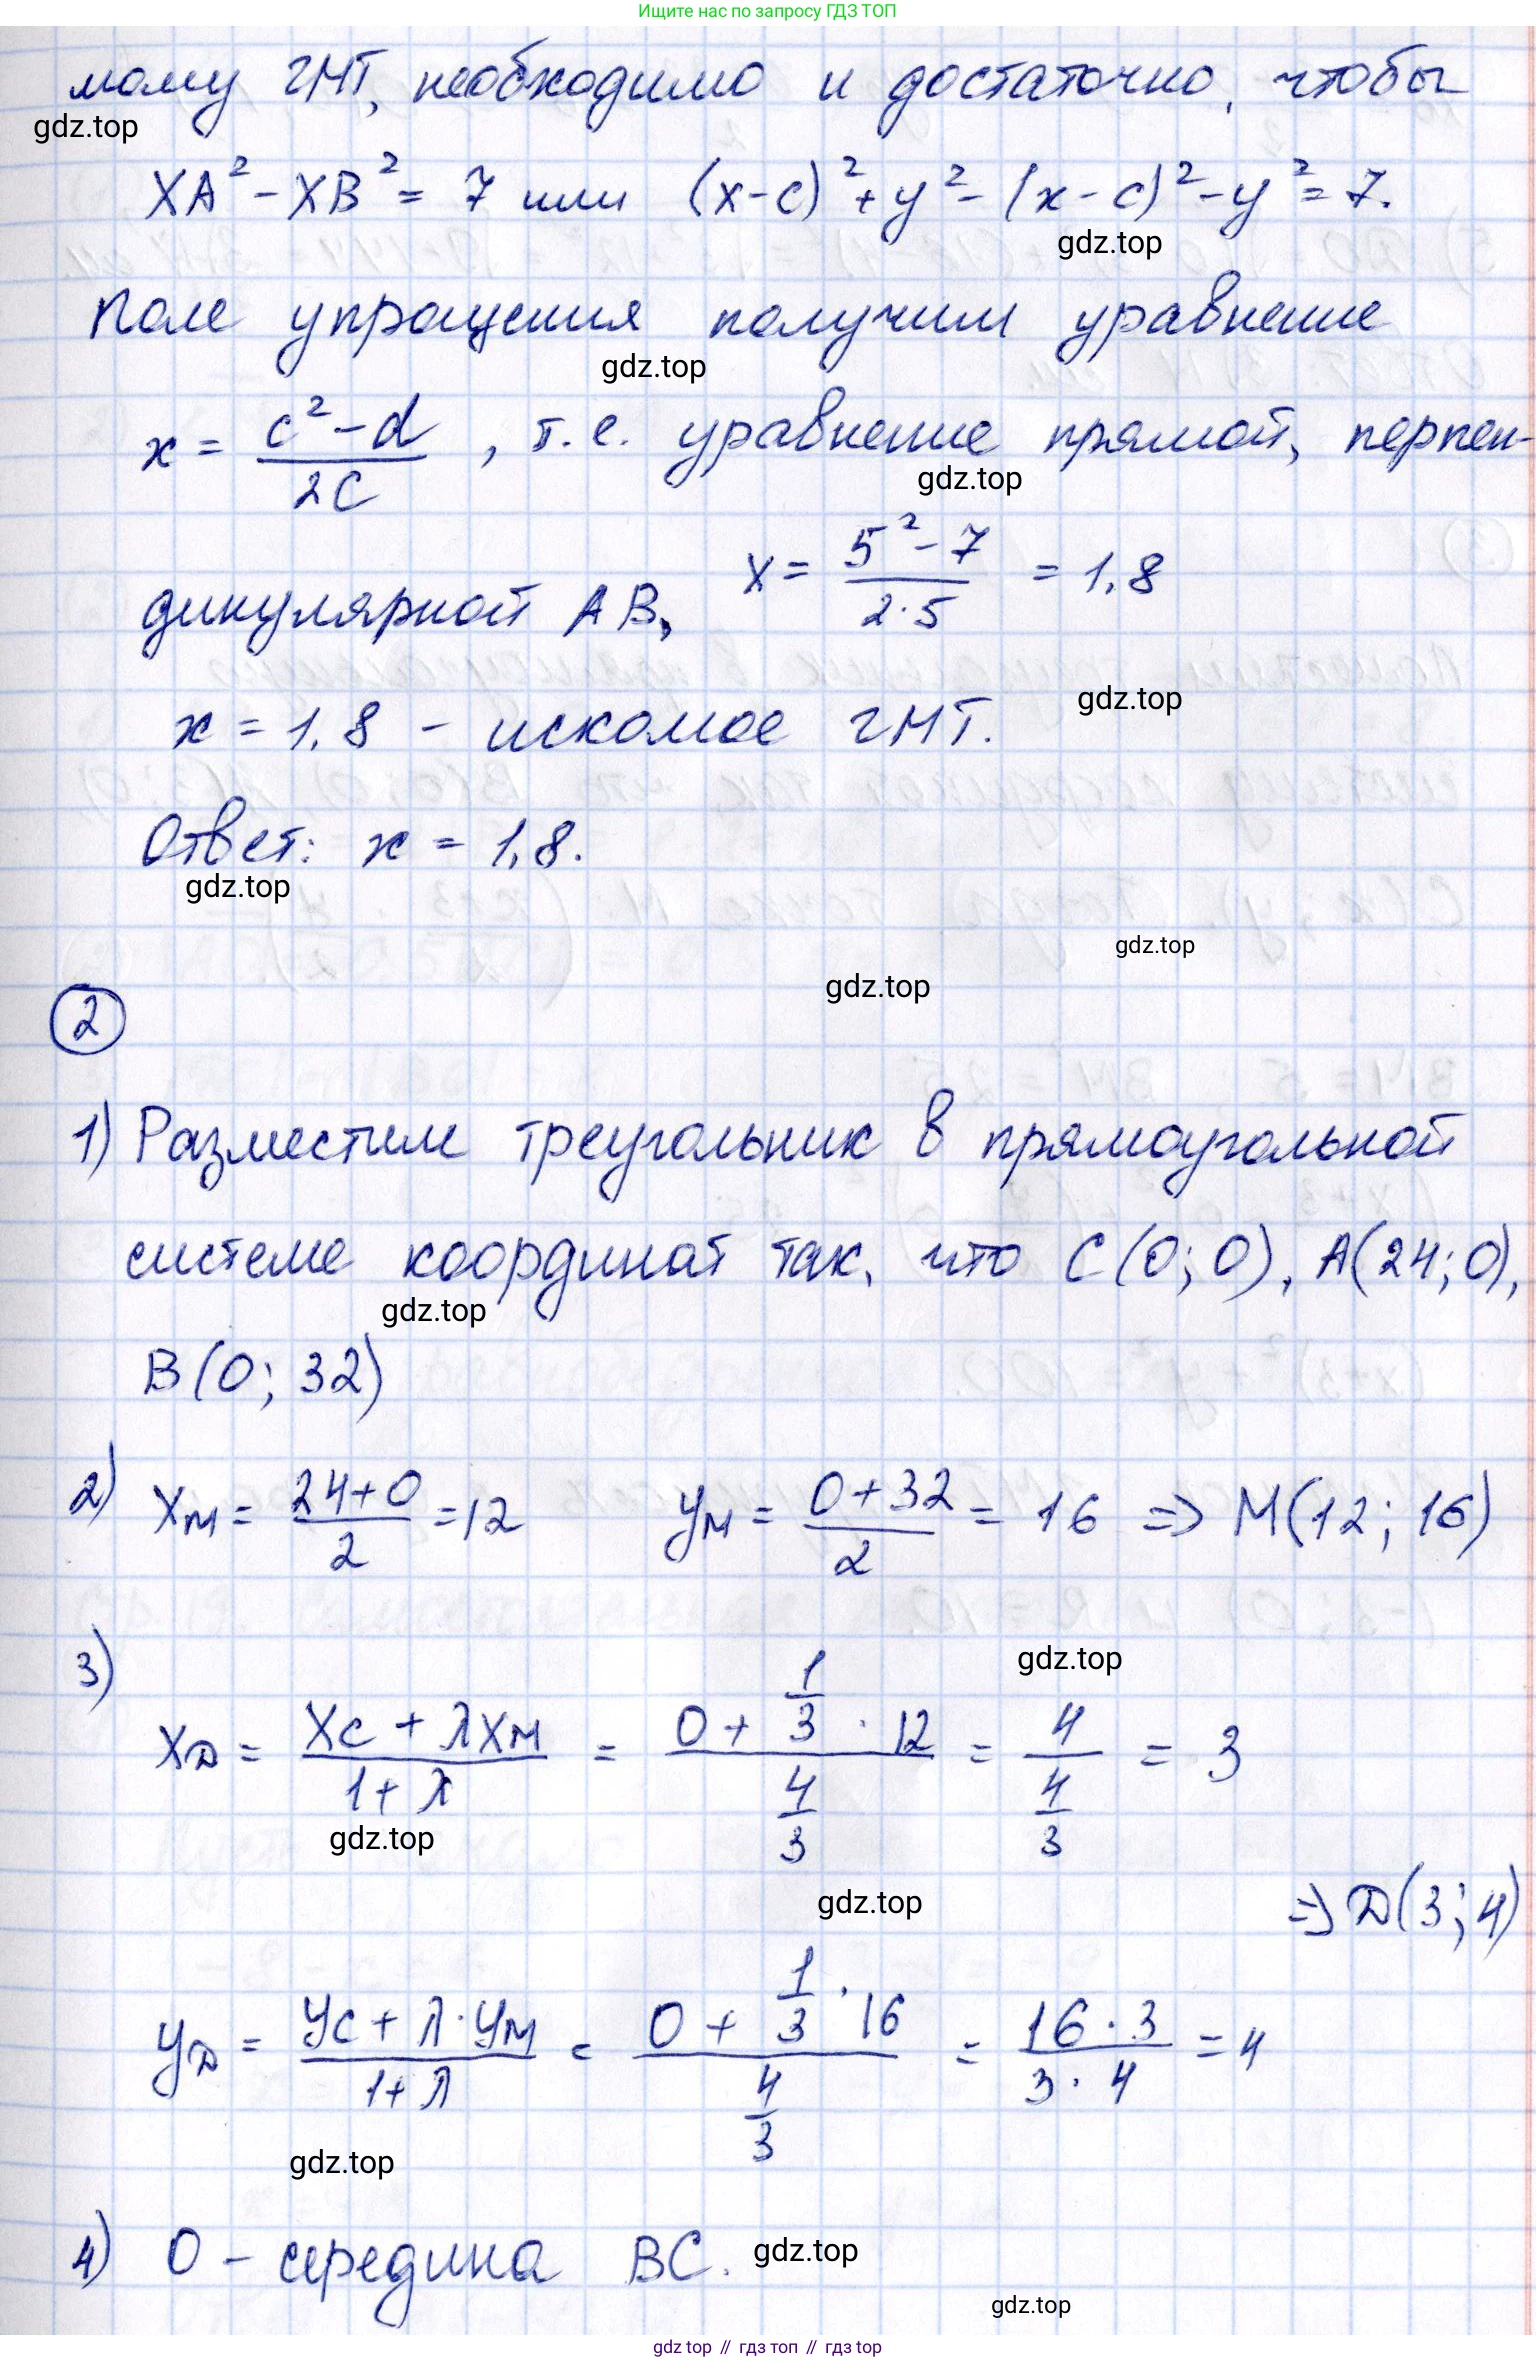 Ищите нас по запросу ГДЗ ТОП
мому ГМТ, необходимо и достаточно, чтобы
gdz.top
XA² - XB² = 7 или (x-c)² + y² - (x-c)² - y² = 7.
gdz.top
Поле упрощения получим уравнение
gdz.top
x = (c² - d)/2C, т.е. уравнение прямой, перпен-
gdz.top
дикулярной AB, x = (5² - 7)/(2·5) = 1,8
gdz.top
x = 1,8 - искомое ГМТ.
Ответ: x = 1,8.
gdz.top
gdz.top
gdz.top
2
1) Разместим треугольник в прямоугольной
системе координат так, что C(0;0), A(24;0),
gdz.top
B(0; 32)
2) xM = (24+0)/2 = 12 yM = (0+32)/2 = 16 => M(12; 16)
gdz.top
3) xD = (xC + λxM)/(1+λ) = (0 + 1/3 · 12)/(4/3) = 4/(4/3) = 3
gdz.top
gdz.top
=> D(3; 4)
yD = (yC + λ·yM)/(1+λ) = (0 + 1/3 · 16)/(4/3) = (16·3)/(3·4) = 4
gdz.top
4) O - середина BC.
gdz.top
gdz.top
gdz.top // гдз топ // gdz.top